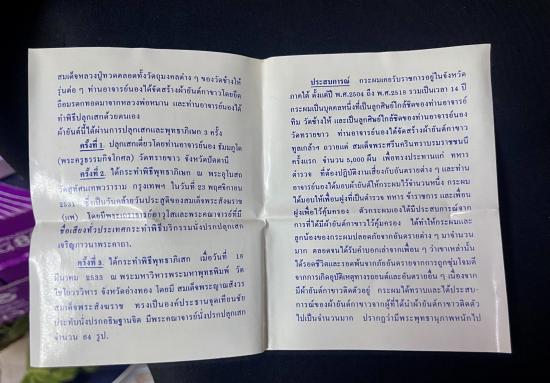 สมเด็จหลวงปู่ทวดตลอดทั้งวัตถุมงคลต่าง ๆ ของวัดช้างให้
รุ่นต่อ ๆ มา ท่านอาจารย์นองได้จัดสร้างผ้ายันต์กาขาวโดยยึด
ถือมรดกทอดมาจากหลวงพ่อหนาน และท่านอาจารย์นองได้
ทำพิธีปลุกเสกด้วยตนเอง
ผ้ายันต์นี้ได้ผ่านการปลุกเสกและพุทธาภิเษก 3 ครั้ง
ครั้งที่ 1. ปลุกเสกเดี่ยวโดยท่านอาจารย์นอง ธัมมภูโต
(พระครูธรรมกิจโกศล) วัดทรายขาว จังหวัดปัตตานี
ครั้งที่ 2. ได้กระทำพิธีพุทธาภิเษก ณ พระอุโบสถ
วัดสุทัศนเทพวราราม กรุงเทพฯ ในวันที่ 23 พฤศจิกายน
2532 ซึ่งเป็นวันคล้ายวันประสูติของสมเด็จพระสังฆราช
(แพ) โดยมีพระเถราจารย์อาวุโสและพระคณาจารย์ที่มี
ชื่อเสียงทั่วประเทศกระทำพิธีบริกรรมนั่งปรกปลุกเสก
เจริญภาวนาพระคาถา
ครั้งที่ 3 ได้กระทำพิธีพุทธาภิเษก เมื่อวันที่ 18
มีนาคม 2533 ณ พระมหาวิหารพระมหาพุทธพิมพ์ วัด
ไชโยวรวิหาร จังหวัดอ่างทอง โดยมี สมเด็จพระญาณสังวร
สมเด็จพระสังฆราช ทรงเป็นองค์ประธานจุดเทียนชัย
ประทับนั่งปรกอธิษฐานจิต มีพระคณาจารย์นั่งปรกปลุกเสก
จำนวน 64 รูป.
ประสบการณ์ กระผมเคยรับราชการอยู่ในจังหวัด
ภาคใต้ ตั้งแต่ปี พ.ศ.2504 ถึง ปี พ.ศ.2518 รวมเป็นเวลา 14 ปี
กระผมเป็นบุคคลหนึ่งที่เป็นลูกศิษย์ใกล้ชิดของท่านอาจารย์
ทิม วัดช้างให้ และเป็นลูกศิษย์ใกล้ชิดของท่านอาจารย์นอง
วัดทรายขาว ท่านอาจารย์นองได้จัดสร้างผ้ายันต์กาขาว
ทูลเกล้าฯ ถวายแด่ สมเด็จพระศรีนครินทราบรมราชชนนี
ครั้งแรก จำนวน 5,000 ผืน เพื่อทรงประทานแก่ ทหาร
ตำรวจ ที่ต้องปฏิบัติงานเสี่ยงกับอันตรายต่าง ๆ และท่าน
อาจารย์นองได้มอบผ้ายันต์ให้กระผมไว้จำนวนหนึ่ง กระผม
ได้มอบให้เพื่อนฝูงที่เป็นตำรวจ ทหาร ข้าราชการ และเพื่อน
ฝูงเพื่อไว้คุ้มครอง ตัวกระผมเองได้มีประสบการณ์จาก
การที่ได้มีผ้ายันต์กาขาวไว้คุ้มครอง ได้ทำให้กระผมและ
ลูกน้องของกระผมปลอดภัยจากอันตรายต่าง ๆ มาจำนวน
มาก ตลอดจนได้รับคำบอกเล่าจากเพื่อน ๆ ว่าเขาเหล่านั้น
ได้รอดชีวิตและรอดพ้นจากภัยอันตรายจากการถูกซุ่มโจมตี
จากการเกิดอุบัติเหตุทางรถยนต์และอันตรายอื่น ๆ เนื่องจาก
มีผ้ายันต์กาขาวติดตัวอยู่ กระผมได้ทราบและได้ประสบ-
การณ์ของผ้ายันต์กาขาวจากผู้ที่ได้นำผ้ายันต์กาขาวติดตัว
ไปเป็นจำนวนมาก ปรากฏว่ามีพระพุทธานุภาพหนักไป